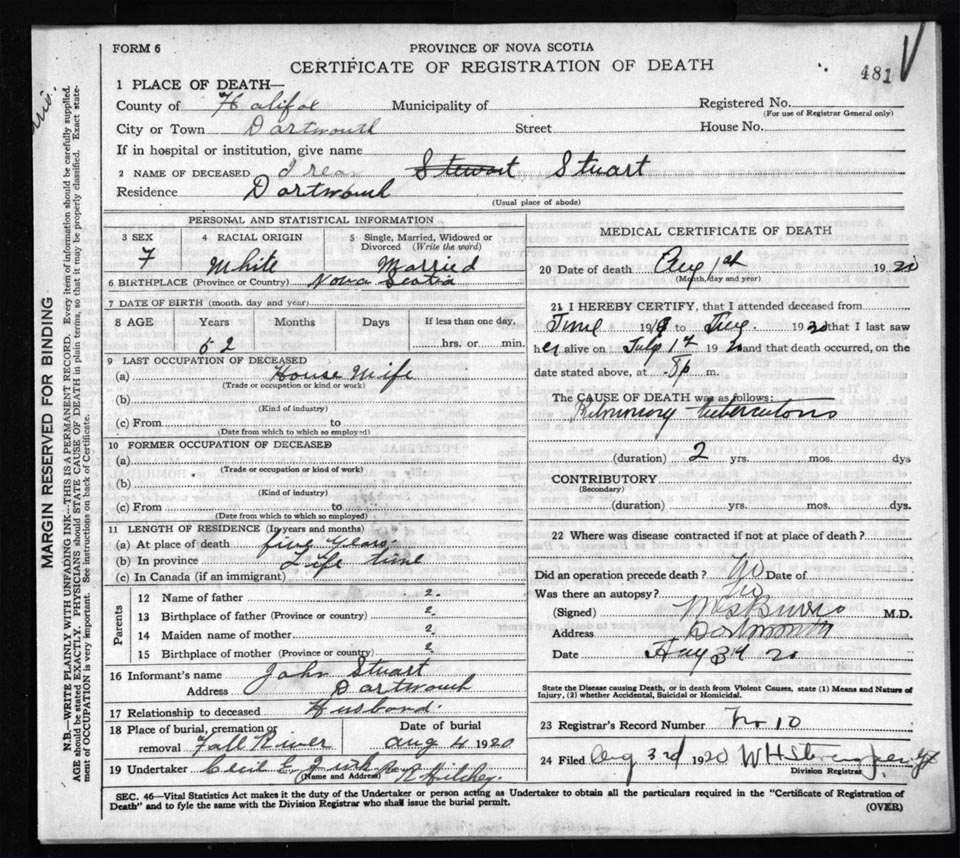 FORM 6
PROVINCE OF NOVA SCOTIA
CERTIFICATE OF REGISTRATION OF DEATH
481
MARGIN RESERVED FOR BINDING
N.B.—WRITE PLAINLY WITH UNFADING INK—THIS IS A PERMANENT RECORD. Every item of information should be carefully supplied.
AGE should be stated EXACTLY. PHYSICIANS should STATE CAUSE OF DEATH in plain terms, so that it may be properly classified. Exact state-
ment of OCCUPATION is very important. See instructions on back of Certificate.
1 PLACE OF DEATH—
County of Halifax Municipality of Registered No.
(For use of Registrar General only)
City or Town Dartmouth Street House No.
If in hospital or institution, give name
2 NAME OF DECEASED Stewart Stuart
Residence Dartmouth
(Usual place of abode)
PERSONAL AND STATISTICAL INFORMATION
3 SEX
F
4 RACIAL ORIGIN
White
5 Single, Married, Widowed or
Divorced (Write the word)
Married
6 BIRTHPLACE (Province or Country) Nova Scotia
7 DATE OF BIRTH (month, day and year)
8 AGE Years Months Days If less than one day,
52 hrs. or min.
9 LAST OCCUPATION OF DECEASED
(a) House Wife
(Trade or occupation or kind of work)
(b)
(Kind of industry)
(c) From to
(Date from which to which so employed)
10 FORMER OCCUPATION OF DECEASED
(a)
(Trade or occupation or kind of work)
(b)
(Kind of industry)
(c) From to
(Date from which to which so employed)
11 LENGTH OF RESIDENCE (In years and months)
(a) At place of death five years
(b) In province Life time
(c) In Canada (if an immigrant)
Parents
12 Name of father 2.
13 Birthplace of father (Province or country) 2.
14 Maiden name of mother 2.
15 Birthplace of mother (Province or country) 2
16 Informant's name John Stuart
Address Dartmouth
17 Relationship to deceased Husband.
18 Place of burial, cremation or
removal Fall River
Date of burial
Aug 4 1920
19 Undertaker Cecil E.
(Name and Address)
MEDICAL CERTIFICATE OF DEATH
20 Date of death Aug 1st 1920
(Month, day and year)
21 I HEREBY CERTIFY, that I attended deceased from
19 to 1920 that I last saw
her alive on July 19 and that death occurred, on the
date stated above, at 5p m.
The CAUSE OF DEATH was as follows:
Pulmonary tuberculosis
(duration) 2 yrs. mos. dys
CONTRIBUTORY
(Secondary)
(duration) yrs. mos. dys.
22 Where was disease contracted if not at place of death?
Did an operation precede death? No Date of
Was there an autopsy?
(Signed) M.D.
Address Dartmouth
Date Aug 3rd 20
State the Disease causing Death, or in death from Violent Causes, state (1) Means and Nature of
Injury, (2) whether Accidental, Suicidal or Homicidal.
23 Registrar's Record Number No 10
24 Filed Aug 3rd 1920 W H
Division Registrar
SEC. 46—Vital Statistics Act makes it the duty of the Undertaker or person acting as Undertaker to obtain all the particulars required in the "Certificate of Registration of
Death" and to fyle the same with the Division Registrar who shall issue the burial permit.
(OVER)